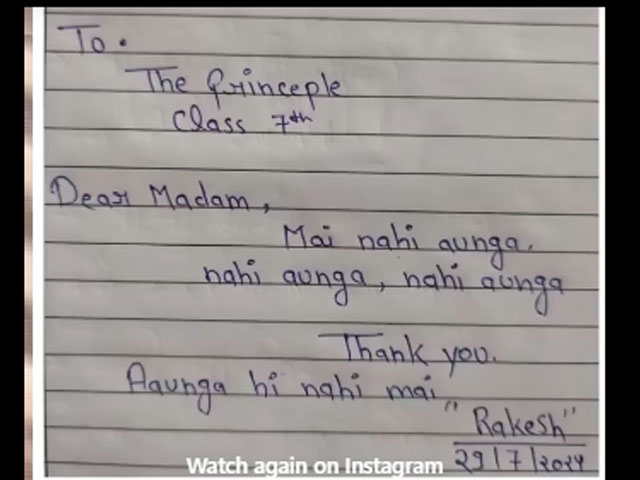 To.
The Princeple
Class 7th
Dear Madam,
Mai nahi aunga,
nahi aunga, nahi aunga
Thank you.
Aaunga hi nahi mai
"Rakesh"
29/7/2024
Watch again on Instagram